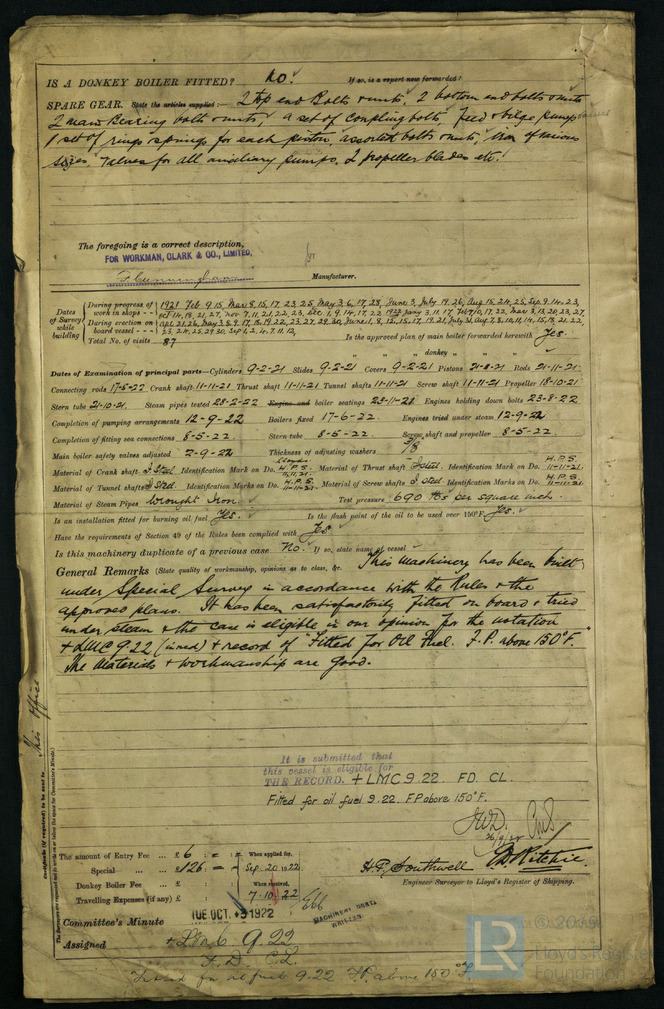 IS A DONKEY BOILER FITTED? No. If so, is a report now forwarded?
SPARE GEAR. State the articles supplied:— 2 top end Bolts & nuts, 2 bottom end bolts & nuts
2 main Bearing bolts & nuts, a set of coupling bolts, Feed & bilge pump
1 set of rings springs for each piston, assorted bolts & nuts, iron of various
sizes. Valves for all auxiliary pumps. 2 propeller blades etc.
The foregoing is a correct description,
FOR WORKMAN, CLARK & CO., LIMITED,
Manufacturer.
Dates of Survey while building
During progress of work in shops - - 1921 Feb 9. 15, Mar 8, 15, 17, 23, 25, May 3, 6, 17, 28, June 3, July 19, 26, Aug 15, 24, 25, Sep 9, 14, 23,
Oct 14, 18, 21, 27, Nov 7, 11, 21, 22, 23, Dec 1, 9, 14, 17, 22 1922 Jany 3, 11, 17, Feb 7, 10, 17, 22, Mar 3, 13, 20, 23,
During erection on board vessel - - - Apl 21, 26, May 3, 8, 9, 17, 18, 19, 22, 23, 27, 29, 30, June 1, 8, 12, 15, 17, 19, 21, July 31, Aug 7, 8, 10, 11, 14, 15, 18, 21, 22,
23, 24, 25, 29, 30, Sep 1, 2, 4, 7, 11, 12,
Total No. of visits 87
Is the approved plan of main boiler forwarded herewith Yes
" " " donkey " " "
Dates of Examination of principal parts—Cylinders 9-2-21 Slides 9-2-21 Covers 9-2-21 Pistons 21-8-21 Rods 21-11-21
Connecting rods 17-5-22 Crank shaft 11-11-21 Thrust shaft 11-11-21 Tunnel shafts 11-11-21 Screw shaft 11-11-21 Propeller 18-10-21
Stern tube 21-10-21. Steam pipes tested 28-2-22 Engine and boiler seatings 23-11-21 Engines holding down bolts 23-8-22
Completion of pumping arrangements 12-9-22 Boilers fixed 17-6-22 Engines tried under steam 12-9-22
Completion of fitting sea connections 8-5-22. Stern tube 8-5-22. Screw shaft and propeller 8-5-22
Main boiler safety valves adjusted 2-9-22 Thickness of adjusting washers 3/8
Material of Crank shaft I Steel Identification Mark on Do. Lloyds H.P.S. 11.11.21. Material of Thrust shaft I Steel. Identification Mark on Do. H.P.S. 11-11-21.
Material of Tunnel shafts I Steel. Identification Marks on Do. H.P.S. 11-11-21. Material of Screw shafts I Steel Identification Marks on Do. H.P.S. 11-11-21
Material of Steam Pipes Wrought Iron. Test pressure 690 lbs per square inch.
Is an installation fitted for burning oil fuel Yes. Is the flash point of the oil to be used over 150°F. Yes.
Have the requirements of Section 49 of the Rules been complied with Yes
Is this machinery duplicate of a previous case No. If so, state name of vessel
General Remarks (State quality of workmanship, opinions as to class, &c. This Machinery has been built
under Special Survey in accordance with the Rules & the
approved plans. It has been satisfactorily fitted on board & tried
under steam & the case is eligible in our opinion for the notation
+ LMC 9.22 (in red) & record of "Fitted For Oil Fuel. F.P. above 150°F."
The Materials & workmanship are good.
It is submitted that
this vessel is eligible for
THE RECORD. + LMC 9.22. FD. CL.
Fitted for oil fuel 9.22. F.P. above 150°F.
JWD.
The amount of Entry Fee ... £ 6 : = : = When applied for,
Special ... £ 126 : = : = Sep. 20. 1922
Donkey Boiler Fee ... £ : : When received,
Travelling Expenses (if any) £ : : 7.10.22
H.P. Southwell D. Ritchie
Engineer Surveyor to Lloyd's Register of Shipping.
Committee's Minute TUE. OCT. 3 1922
MACHINERY CERT. WRITTEN.
Assigned + LMC 9.22
F.D. C.L.
Fitted for oil fuel 9.22 F.P. above 150°F.
This Office
Certificate (if required) to be sent to
The Surveyors are requested not to write on or below the space for Committee's Minute.
LR
Lloyd's Register
Foundation